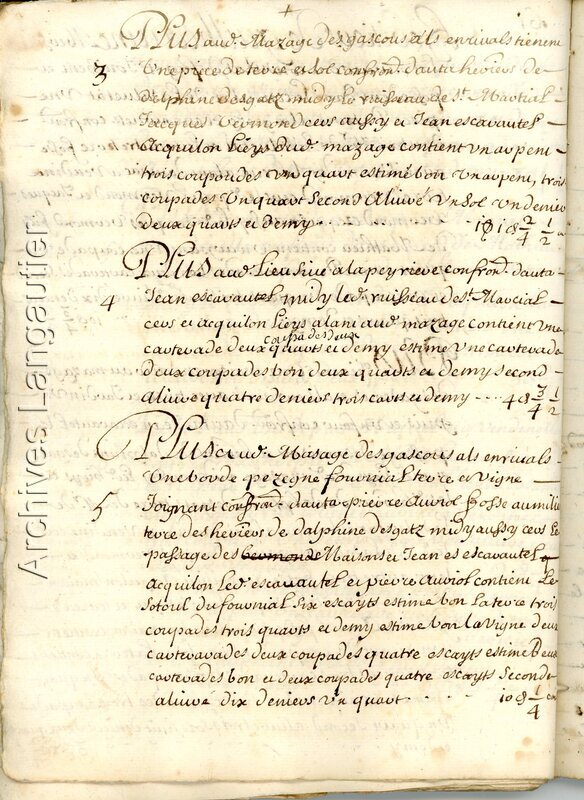 +
Plus aud. Mazage des gascous als enrivals tienent
3 Une piece de terre et sol confron. dauta heriers de
delphine desgatz midy le ruisseau de St. Martial
Jacques Vermond cers aussy et Jean escavautel
acquilon Pieys dud. mazage contient un arpent
trois coupades un quart estimé bon un arpent, trois
coupades un quart second Alivré un sol un denier
deux quarts et demy 1 s 1 d 2/4 1/2
Plus aud. Lieu sive a la peyriere confron. dauta
4 Jean escavautel midy led. ruisseau de St. Marcial
cers et acquilon Pieys alari aud. mazage contient une
carterade deux quarts et demy estimé une carterade
coupades deux
deux coupades bon deux quarts et demy second
alivre quatre deniers trois carts et demy 4 d 3/4 1/2
Plus aud. Masage des gascous als enrivals
Une borde pezegne fournial terre et vigne
5 Joignant confron. dauta pierre auriol fosse au milieu
terre des heriers de dalphine desgatz midy aussy cers le
passage des Maisons et Jean es escavautel
acquilon Led. escavautel et pierre auriol contient Le
sotoul du fournial six escayts estimé bon la terre trois
coupades trois quarts et demy estimé bon la vigne deux
carteravades deux coupades quatre escayts estimé deux
carterades bon et deux coupades quatre escayts second
alivré dix deniers un quart 10 d 1/4
Archives Langautier